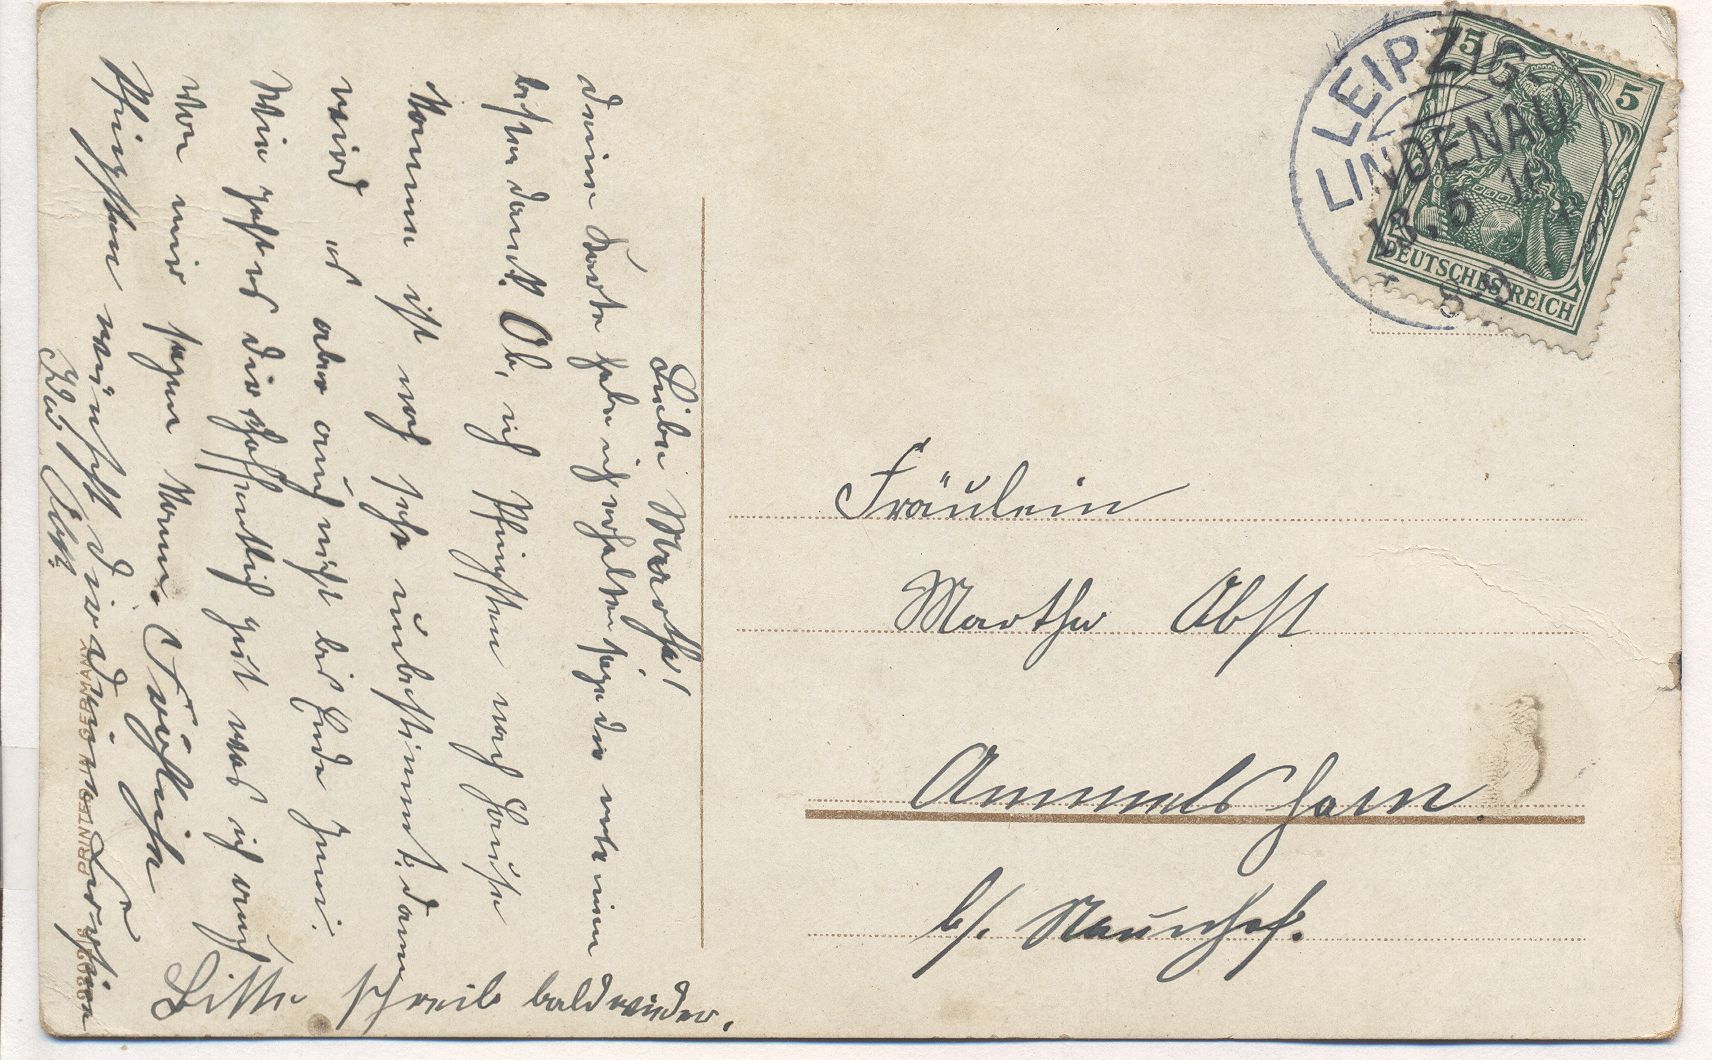 LEIPZIG-
LINDENAU
13.5.10
8-9
5
5
DEUTSCHES REICH
Liebe Martha!
deine Karte habe ich erhalten sage dir meinen
besten dank. Ob, ich Pfingsten nach Hause
komme ist noch sehr unbestimmt; dann
wird es aber auch nicht bis Ende Juni.
Wie geht es dir hoffentlich gut was ich auch
von mir sagen kann. Fröhliche
Pfingsten wünscht dir deine
Abst.
Bitte schreib bald wieder.
Fräulein
Martha Abst
Ammelshain
b/. Naunhof.
PRINTED IN GERMANY